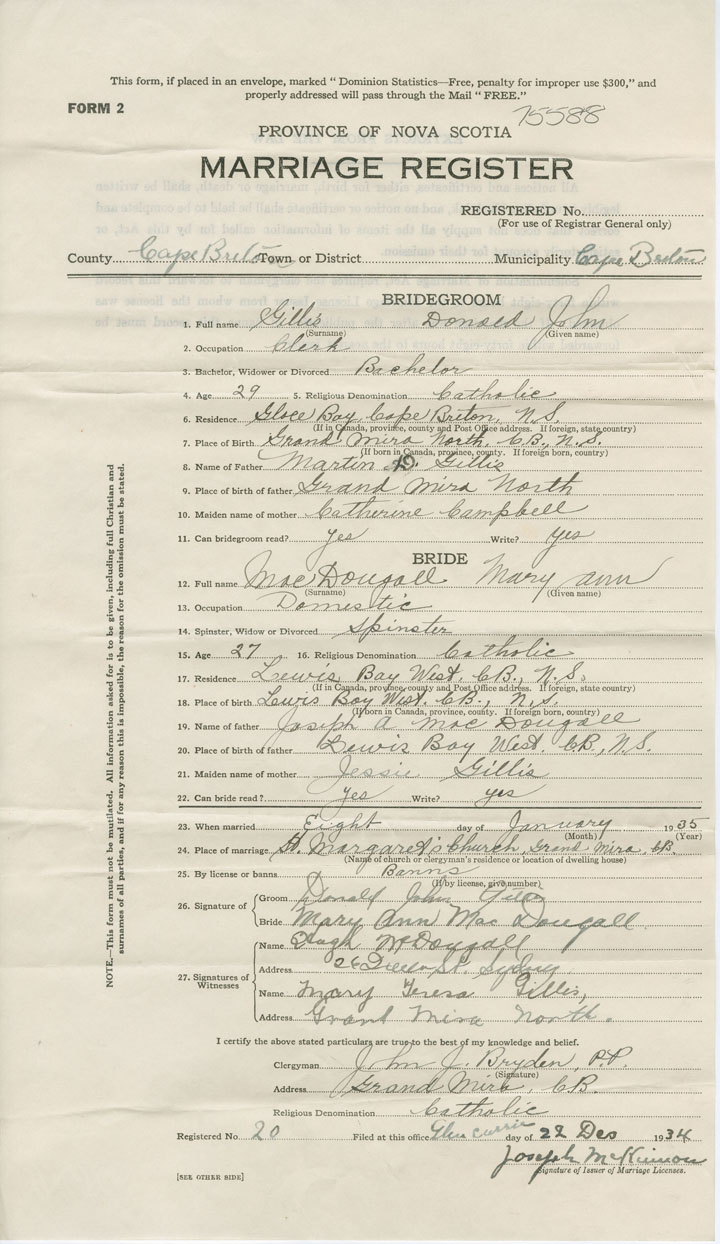 This form, if placed in an envelope, marked " Dominion Statistics—Free, penalty for improper use $300," and
properly addressed will pass through the Mail " FREE."
FORM 2
75588
PROVINCE OF NOVA SCOTIA
MARRIAGE REGISTER
REGISTERED No.
(For use of Registrar General only)
County Cape Breton Town or District Municipality Cape Breton
BRIDEGROOM
1. Full name Gillis Donald John
(Surname) (Given name)
2. Occupation Clerk
3. Bachelor, Widower or Divorced Bachelor
4. Age 29 5. Religious Denomination Catholic
6. Residence Glace Bay, Cape Breton, N.S.
(If in Canada, province, county and Post Office address. If foreign, state, country)
7. Place of Birth Grand Mira North, C.B., N.S.
(If born in Canada, province, county. If foreign born, country)
8. Name of Father Martin D. Gillis
9. Place of birth of father Grand Mira North
10. Maiden name of mother Catherine Campbell
11. Can bridegroom read? Yes Write? Yes
BRIDE
12. Full name MacDougall Mary Ann
(Surname) (Given name)
13. Occupation Domestic
14. Spinster, Widow or Divorced Spinster
15. Age 27 16. Religious Denomination Catholic
17. Residence Lewis Bay West, C.B., N.S.
(If in Canada, province, county and Post Office address. If foreign, state country)
18. Place of birth Lewis Bay West. C.B., N.S.
(If born in Canada, province, county. If foreign born, country)
19. Name of father Joseph A MacDougall
20. Place of birth of father Lewis Bay West, C.B., N.S.
21. Maiden name of mother Jessie Gillis
22. Can bride read? Yes Write? Yes
23. When married Eight day of January 1935
(Month) (Year)
24. Place of marriage St. Margaret's Church, Grand Mira, C.B.
(Name of church or clergyman's residence or location of dwelling house)
25. By license or banns Banns
(If by license, give number)
26. Signature of Groom Donald John Gillis
Bride Mary Ann Mac Dougall
27. Signatures of Witnesses Name Hugh McDougall
Address 26 St. Sydney
Name Mary Teresa Gillis,
Address Grant Mira North.
I certify the above stated particulars are true to the best of my knowledge and belief.
Clergyman John J. Bryden, P.P.
(Signature)
Address Grand Mira, C.B.
Religious Denomination Catholic
Registered No. 20 Filed at this office Glen Currie day of 22 Dec 1934
Joseph McKinnon
Signature of Issuer of Marriage Licenses.
[SEE OTHER SIDE]
NOTE.—This form must not be mutilated. All information asked for is to be given, including full Christian and
surnames of all parties, and if for any reason this is impossible, the reason for the omission must be stated.